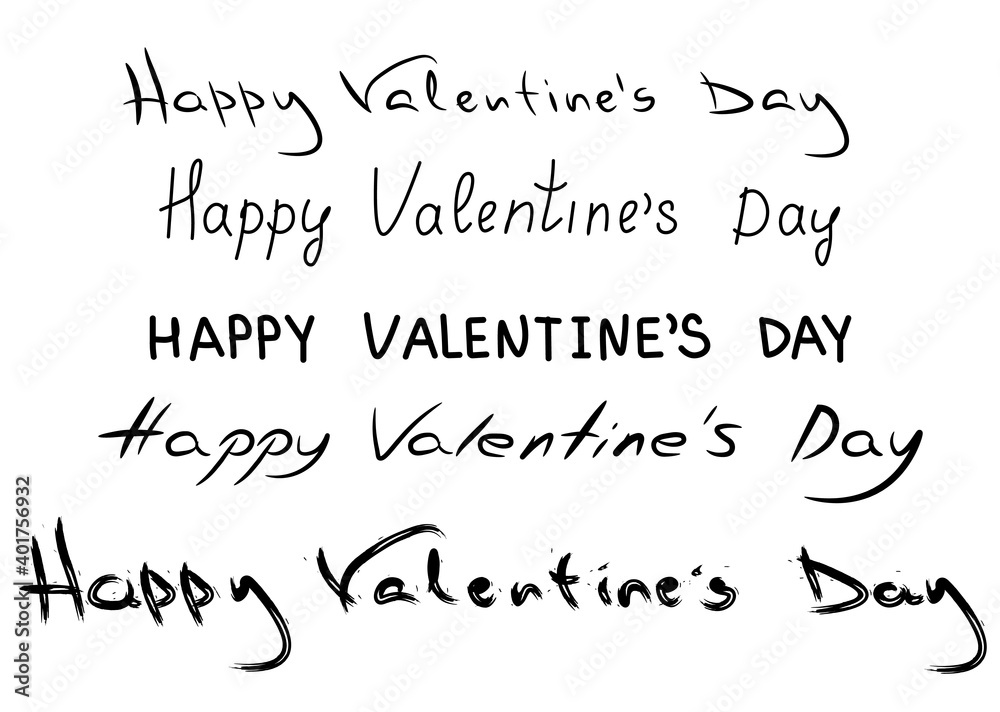 Happy Valentine's Day
Happy Valentine's Day
HAPPY VALENTINE'S DAY
Happy Valentine's Day
Happy Valentine's Day
Adobe Stock | #401756932